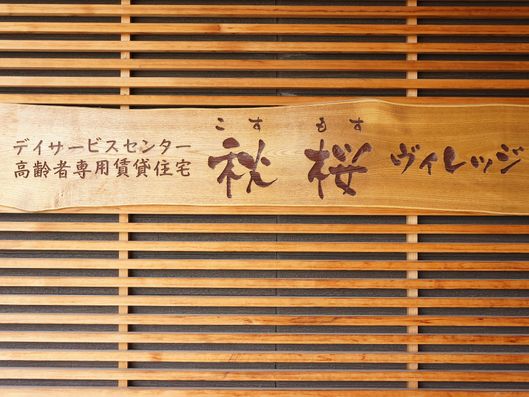 デイサービスセンター
高齢者専用賃貸住宅
こすもす
秋桜 ヴィレッジ